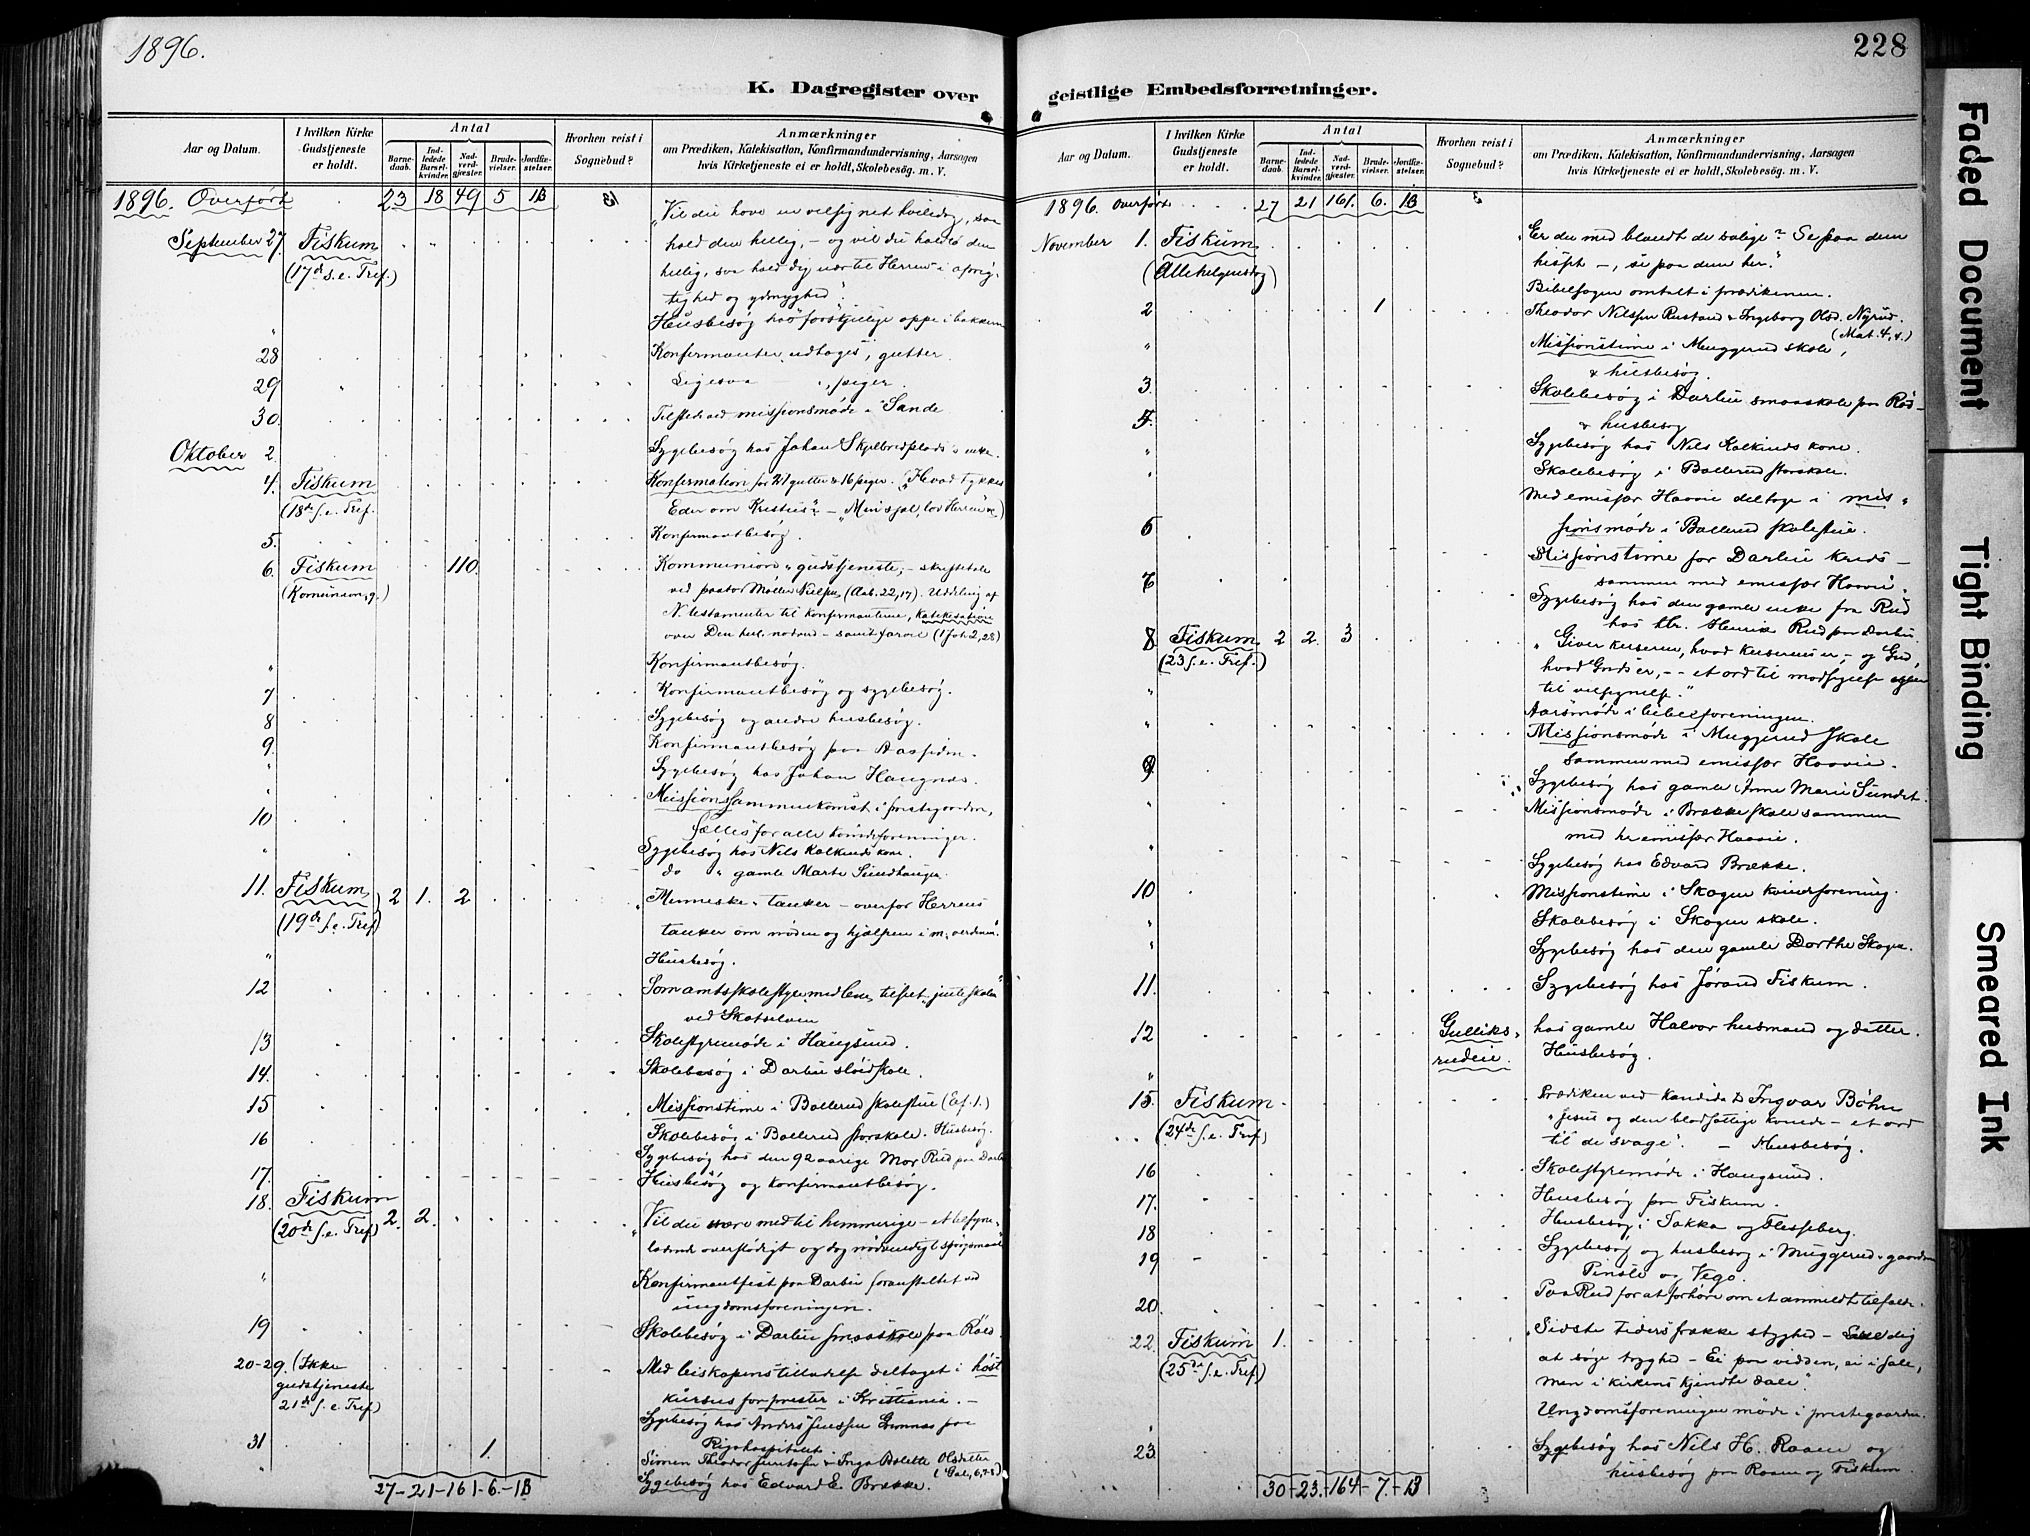 1896.
228
K. Dagregister over
geistlige Embedsforretninger.
Aar og Datum.
I hvilken Kirke Gudstjeneste er holdt.
Antal
Barnedaab.
Indledede Barselkvinder.
Nadverdgjæster.
Brudevielser.
Jordfæstelser.
Hvorhen reist i Sognebud?
Anmærkninger
om Prædiken, Katekisation, Konfirmandundervisning, Aarsagen
hvis Kirketjeneste ei er holdt, Skolebesøg. m. V.
1896. Overført 23 18 49 5 13
"Vil du have en velsignet hviledag, saa
September 27. Fiskum hold den hellig, – og vil du holde den
(17de s. e. Tref.) hellig, saa hold dig nær til Herren i oprig-
tighed og ydmyghed".
" Husbesøg hos forskjellige oppe i bakkerne
28 Konfirmanter udtages, gutter.
29 Ligesaa – ", piger.
30. Tilstede ved missionsmøde i Sande
Oktober 2. Sygebesøg hos Johan Skjelbredplads's enke.
4. Fiskum Konfirmation for 21 gutter & 16 piger. "Hvad tykkes
(18de s. e. Tref. Eder om Kristus"? – "Min sjæl, lov Herren")
5. Konfirmantbesøg.
6. Fiskum 110 Kommunions gudstjeneste, – skriftetale
(Kommunion, g.) ved pastor Møller Nielsen (Aab. 22,17). Uddeling af
N. testamenter til konfirmanterne, katekisation
over Den hel. nadver – samt farvel (1 Joh. 2,28)
" Konfirmantbesøg.
7 Konfirmantbesøg og sygebesøg.
8 Sygebesøg og andre husbesøg.
9. Konfirmantbesøg paa Aassiden.
" Sygebesøg hos Johan Haugnes.
10 Missionssammenkomst i prestegaarden,
fælles for alle kvindeforeninger.
" Sygebesøg hos Nils Kalkinds kone.
do " gamle Marte Sundhaugen.
11. Fiskum 2 1. 2 "Menneske-tanker – overfor Herrens
(19de s. e. Tref) tanker om nøden og hjælpen i m. verdenen".
" Husbesøg.
12 Som amtsskolestyremedlem tilset "pikeskolen"
ved Skotselven
13 Skolestyremøde i Haugsund.
14. Skolebesøg i Darbu sløidskole.
15 Missionstime i Bollerud skolestue (Ef. 1.)
16 Skolebesøg i Bollerud storskole. Husbesøg.
Sygebesøg hos den 92 aarige Mor Rud paa Darbu
17. Husbesøg og konfirmantbesøg.
18. Fiskum 2. 2. "Vil du være med til himmerige – et tilsyne-
(20de s. e. Tref) ladende overflødigt og dog nødvendigt spørgsmaal"
" Konfirmantfest paa Darbu foranstaltet ved
ungdomsforeningen.
19 Skolebesøg i Darbu smaaskole paa Røed.
20-29. (Ikke Med biskopens tilladelse deltaget i høst
gudstjeneste kursus for prester i Kristiania. –
21de s. e. Tref) Sygebesøg hos Anders Jenssen Grønnæs paa
Rigshospitalet
31 1. Simen Theodor Juntofsen & Inga Bolette Olsdatter
(Gal. 6,7-8)
" Sygebesøg hos Edvard E. Brække.
27-21-161-6.-13
Aar og Datum.
I hvilken Kirke Gudstjeneste er holdt.
Antal
Barnedaab.
Indledede Barselkvinder.
Nadverdgjæster.
Brudevielser.
Jordfæstelser.
Hvorhen reist i Sognebud?
Anmærkninger
om Prædiken, Katekisation, Konfirmandundervisning, Aarsagen
hvis Kirketjeneste ei er holdt, Skolebesøg. m. V.
1896. Overført 27 21 161. 6. 13
November 1. Fiskum "Er du med blandt de salige? Se paa dem
(Allehelgensdag) hisset –, se paa dem her."
Bibelsagen omtalt i prædikenen.
2 1 Theodor Nilssen Rustand & Ingeborg Olsd. Nyrud.
(Mat. 4, 4.)
" Missionstime i Muggerud skole,
& husbesøg.
3. Skolebesøg i Darbu smaaskole paa Røed
& husbesøg
4. Sygebesøg hos Nils Kalkinds kone.
" Skolebesøg i Bollerud storskole.
" Med emissær Haavie deltage i mis-
6 sionsmøde i Bollerud skolestue.
Missionstime for Darbu kreds –
7 sammen med emissær Haavie.
Sygebesøg hos den gamle enke fra Rud
hos Hr. Henrik Rud paa Darbu
8 Fiskum 2 2. 3 "Giver keiseren, hvad keiserens er, – og Gud,
(23 s. e. Tref.) hvad Guds er, – – et ord til modsigelse
til velsignelse."
" Aarsmøde i bibelforeningen.
" Missionsmøde i Muggerud skole
sammen med emissær Haavie.
9. Sygebesøg hos gamle Anne Marie Sundet.
" Missionsmøde i Brække skole sammen
med hr emissær Haavie.
" Sygebesøg hos Edvard Brække.
10 Missionstime i Skogen kvindeforening.
" Skolebesøg i Skogen skole.
" Sygebesøg hos den gamle Dorthe Skogen.
11. Sygebesøg hos Jørand Fiskum.
12 Gulliks- hos gamle Halvor husmand og datter.
" rudeie. Husbesøg.
15. Fiskum Prædiken ved kandidat Ingvar Bøhn
(24de s. e. Tref) "Jesus og den blodsottige kvinde – et ord
til de svage". – Husbesøg.
16 Skolestyremøde i Haugsund.
17. Husbesøg paa Fiskum.
18 Husbesøg i Sakka og Flesseberg.
19 Sygebesøg og husbesøg i Muggerud-gaarden
Pinsle og Vego.
20. Paa Rud for at forhøre om et anmeldt tilfælde.
22. Fiskum 1. "Sidste tiders frække styghed – Lærer dig
(25de s. e. Tref) at søge tryghed – Ei paa vidden, ei i sale,
Men i kirkens kjendte dale".
" Ungdomsforeningen møde i prestegaarden.
23. Sygebesøg hos Nils H. Raaen og
husbesøg paa Raaen og Fiskum
30-23.-164-7.-13
Faded Document
Tight Binding
Smeared Ink